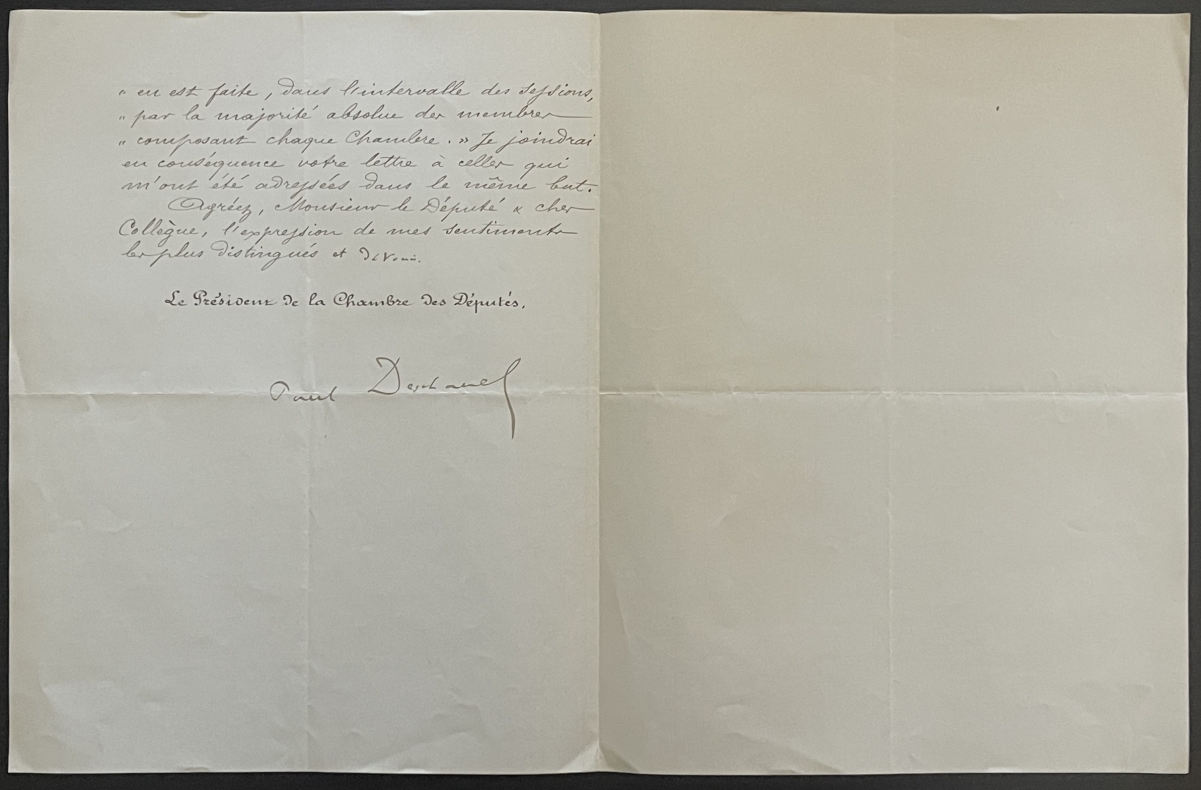 " en est faite, dans l'intervalle des sessions,
" par la majorité absolue des membres
" composant chaque Chambre. » Je joindrai
en conséquence votre lettre à celles qui
m'ont été adressées dans le même but.
Agréez, Monsieur le Député & cher
Collègue, l'expression de mes sentiments
les plus distingués et dévoués.
Le Président de la Chambre des Députés.
Paul Deschanel